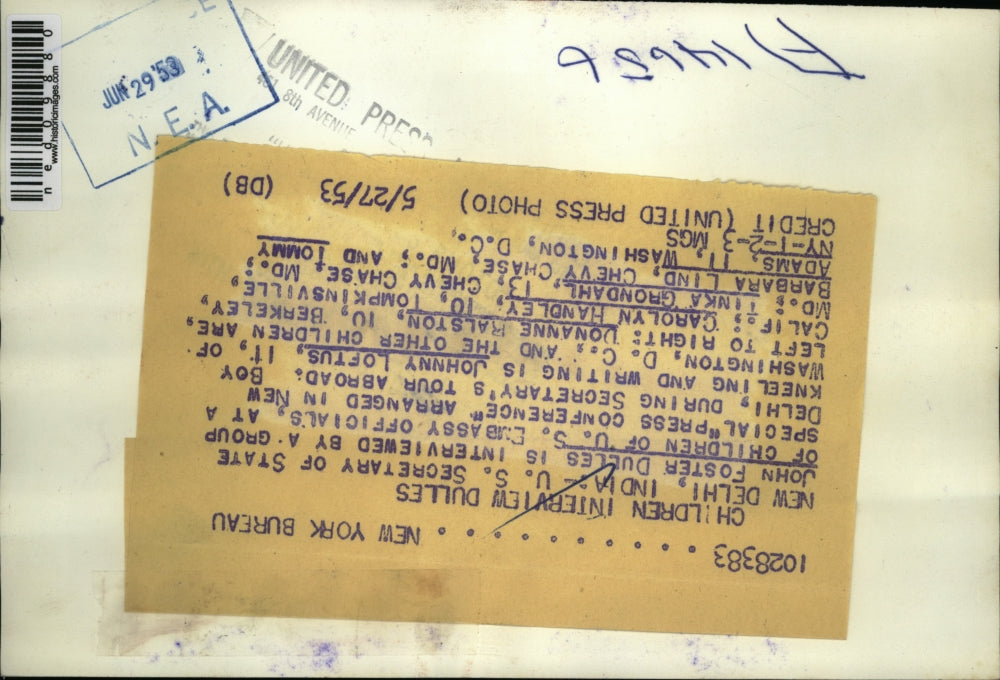 ned09880
www.historicimages.com
JUN 29 '53
N. E. A.
UNITED PRESS
461 8th AVENUE
1028383 . . . . . . . . . . . NEW YORK BUREAU
CHILDREN INTERVIEW DULLES
NEW DELHI, INDIA:- U. S. SECRETARY OF STATE
JOHN FOSTER DULLES IS INTERVIEWED BY A GROUP
OF CHILDREN OF U. S. EMBASSY OFFICIALS, AT A
SPECIAL "PRESS CONFERENCE" ARRANGED IN NEW
DELHI, DURING SECRETARY'S TOUR ABROAD. BOY
KNEELING AND WRITING IS JOHNNY LOFTUS, 11, OF
WASHINGTON, D. C., AND THE OTHER CHILDREN ARE,
LEFT TO RIGHT: DONANNE RALSTON, 10, BERKELEY,
CALIF.; CAROLYN HANDLEY, 10, TOMPKINSVILLE,
MD.; TINKA GRONDAHL, 13, CHEVY CHASE, MD.;
BARBARA LIND, CHEVY CHASE, MD.; AND TOMMY
ADAMS, 11, WASHINGTON, D.C.,
NY-1-2-3 MGS
CREDIT (UNITED PRESS PHOTO) 5/27/53 (DB)